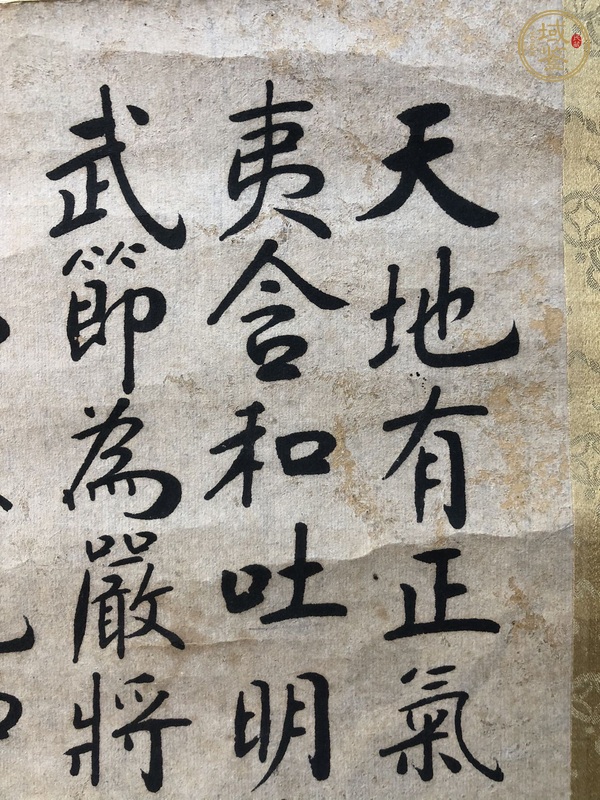 天地有正氣
夷含和吐明
武節為嚴將